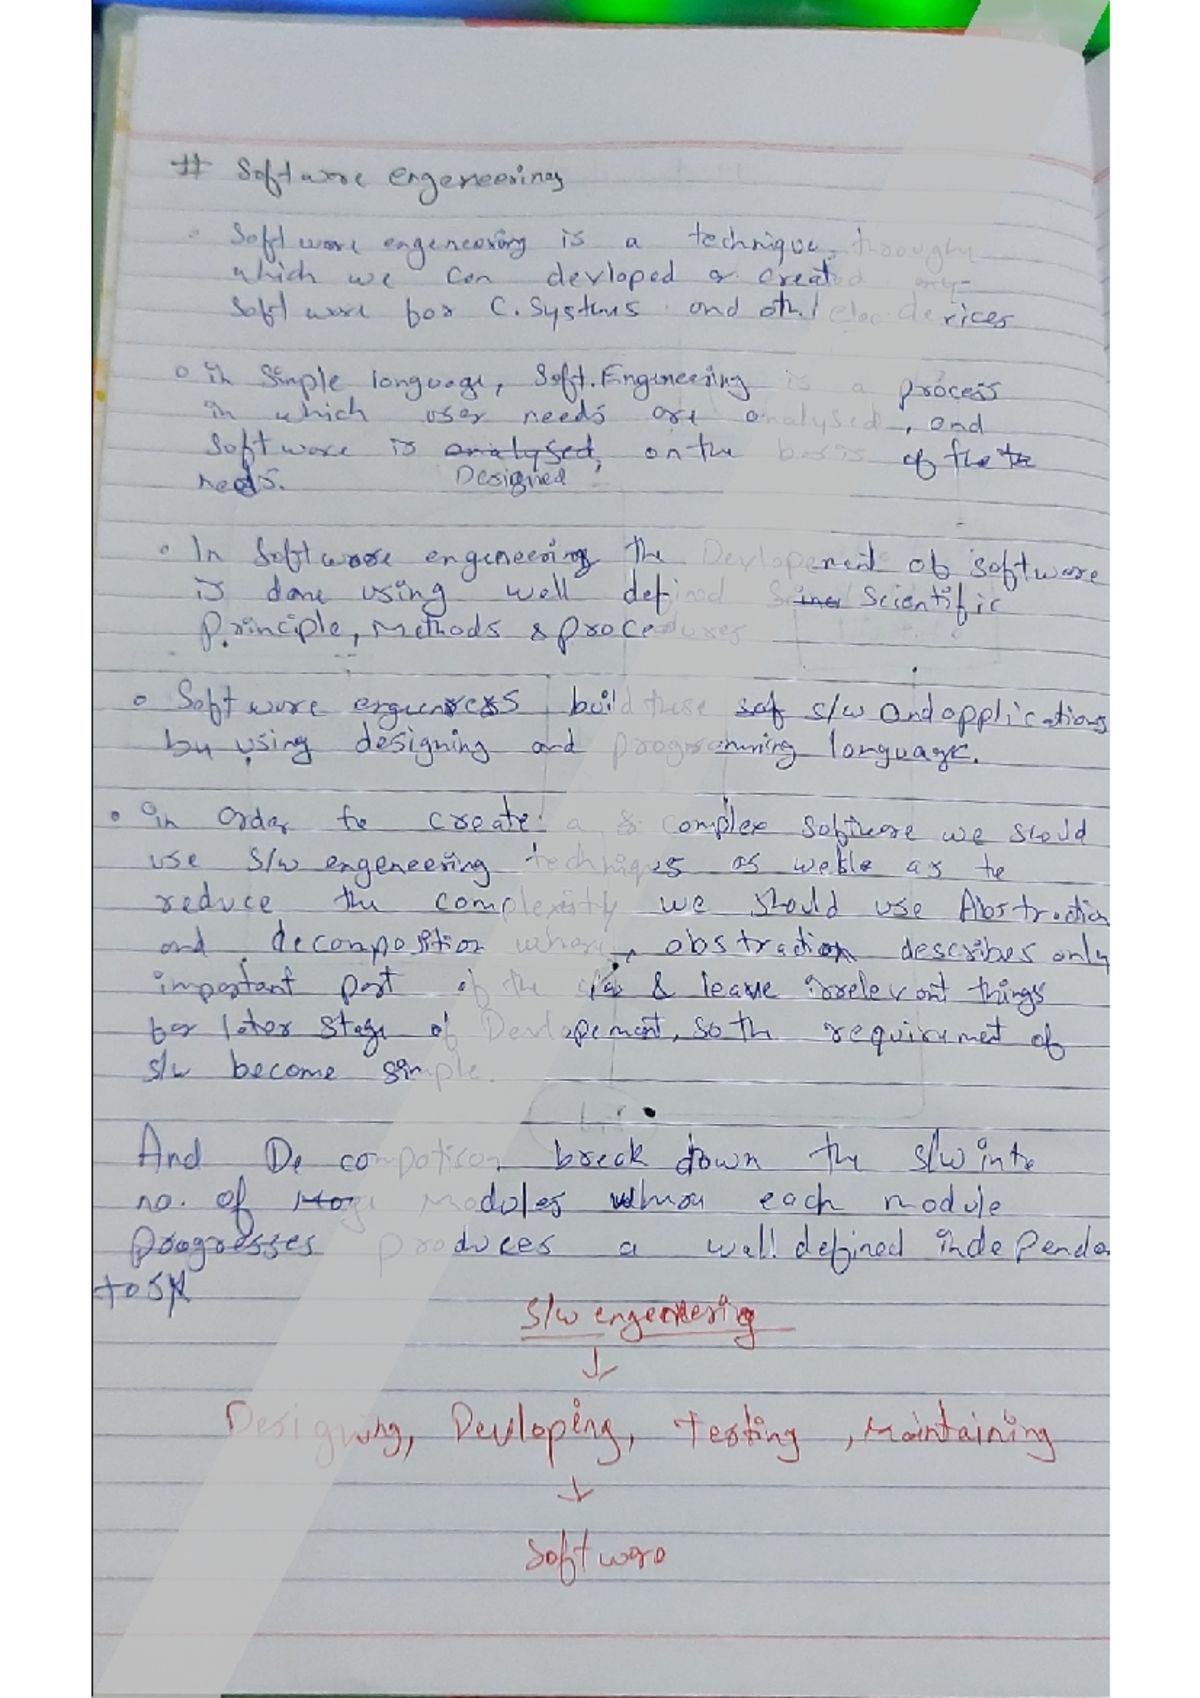 # Software engeneering
Software engeneering is a technique, through
which we can devloped or created any
Software for C. Systems and oth. / elec. devices
in Simple language, Soft. Engineering is a process
in which user needs are analysed, and
Software is analysed, on the basis of the
needs. Designed
In Software engeneering the Devlopement of software
is done using well defined Scientific
Principle, Methods & procedures
Software build these s/w and applications
by using designing and programming language.
in order to create a complex Software we should
use s/w engeneering techniques as as to
reduce the complexity we should use Abstraction
and decomposition where, abstraction describes only
important part of the s/w & leave irrelevant things
for later stage of Devlopement, so the requirement of
s/w become simple.
And break down the s/w into
no. of modules where each module
Progresses produces a well defined independe
s/w engeneering
↓
Designing, Devloping, Testing, Maintaining
↓
Software